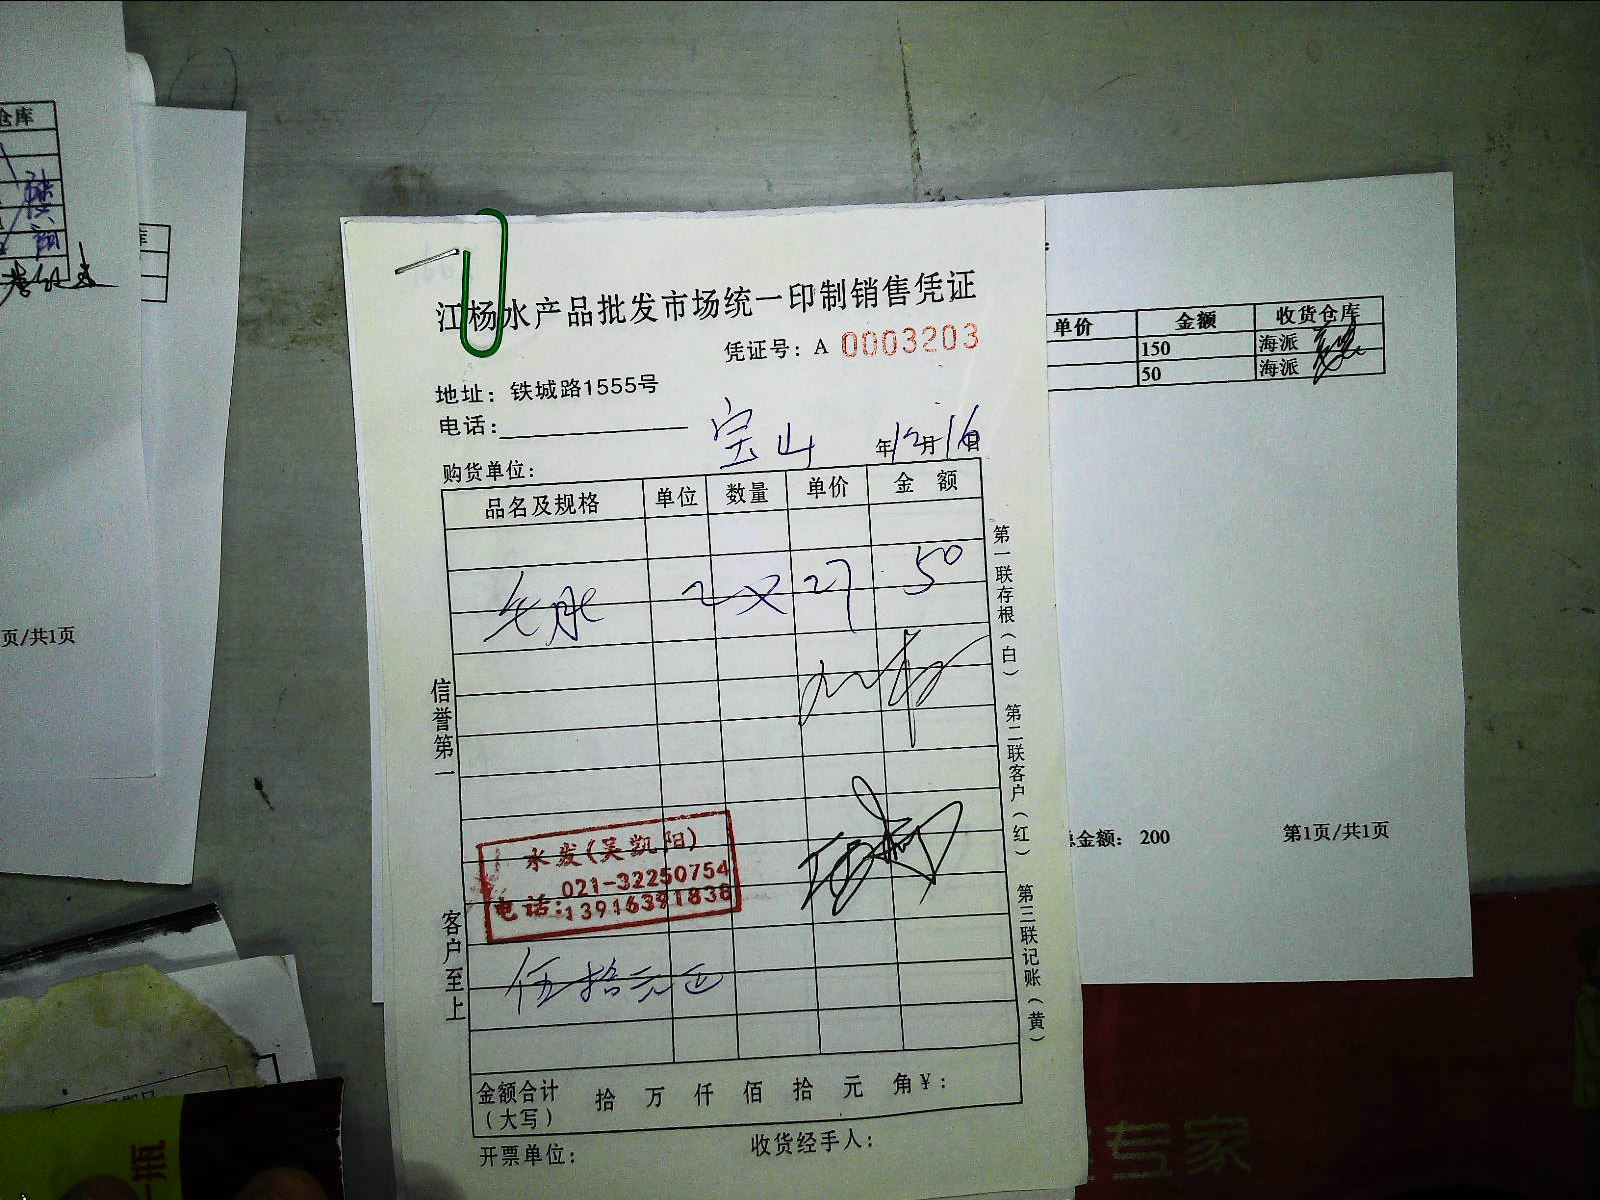 仓库
库
页/共1页
江杨水产品批发市场统一印制销售凭证
凭证号：A 0003203
地址：铁城路1555号
电话：
宝山 年12月16日
购货单位：
品名及规格 单位 数量 单价 金额
27 50
水发（吴凯阳）
电话：021-32250754
13916391838
伍拾元正
金额合计（大写） 拾 万 仟 佰 拾 元 角￥：
开票单位： 收货经手人：
信誉第一
客户至上
第一联存根（白）
第二联客户（红）
第三联记账（黄）
单价 金额 收货仓库
150 海派
50 海派
总金额： 200 第1页/共1页
瓶
专家